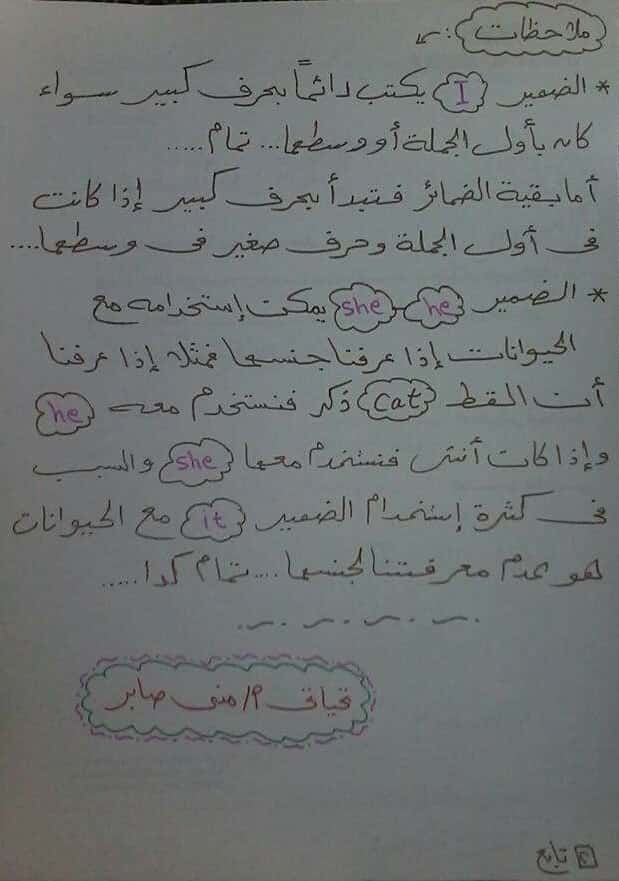 ملاحظات :
* الضمير I يكتب دائماً بحرف كبير سواء
كان بأول الجملة أو وسطها... تمام.....
أما بقية الضمائر فتبدأ بحرف كبير إذا كانت
فى أول الجملة وحرف صغير فى وسطها....
* الضمير he - she يمكن إستخدامه مع
الحيوانات إذا عرفنا جنسها فمثلا إذا عرفنا
أن القط cat ذكر فنستخدم معه he
وإذا كانت أنثى فنستخدم معها she والسبب
فى كثرة إستخدام الضمير it مع الحيوانات
هو عدم معرفتنا لجنسها .... تمام كدا .....
تحياتى م/ منى صابر
تابع